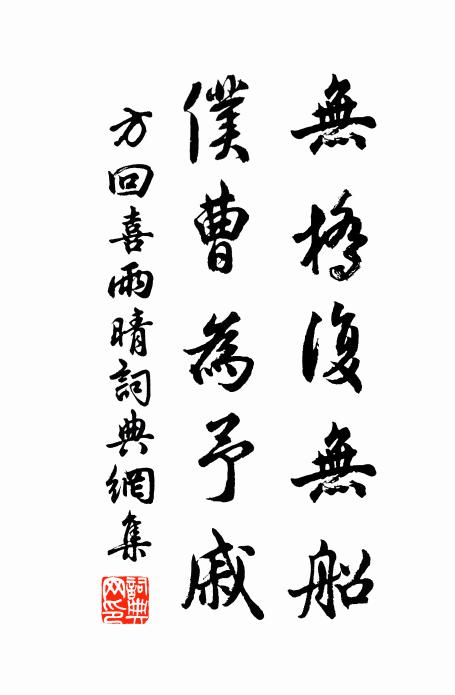 無橋復無船
僕曹為予戚
方回喜雨晴詞典網集
詞典網印